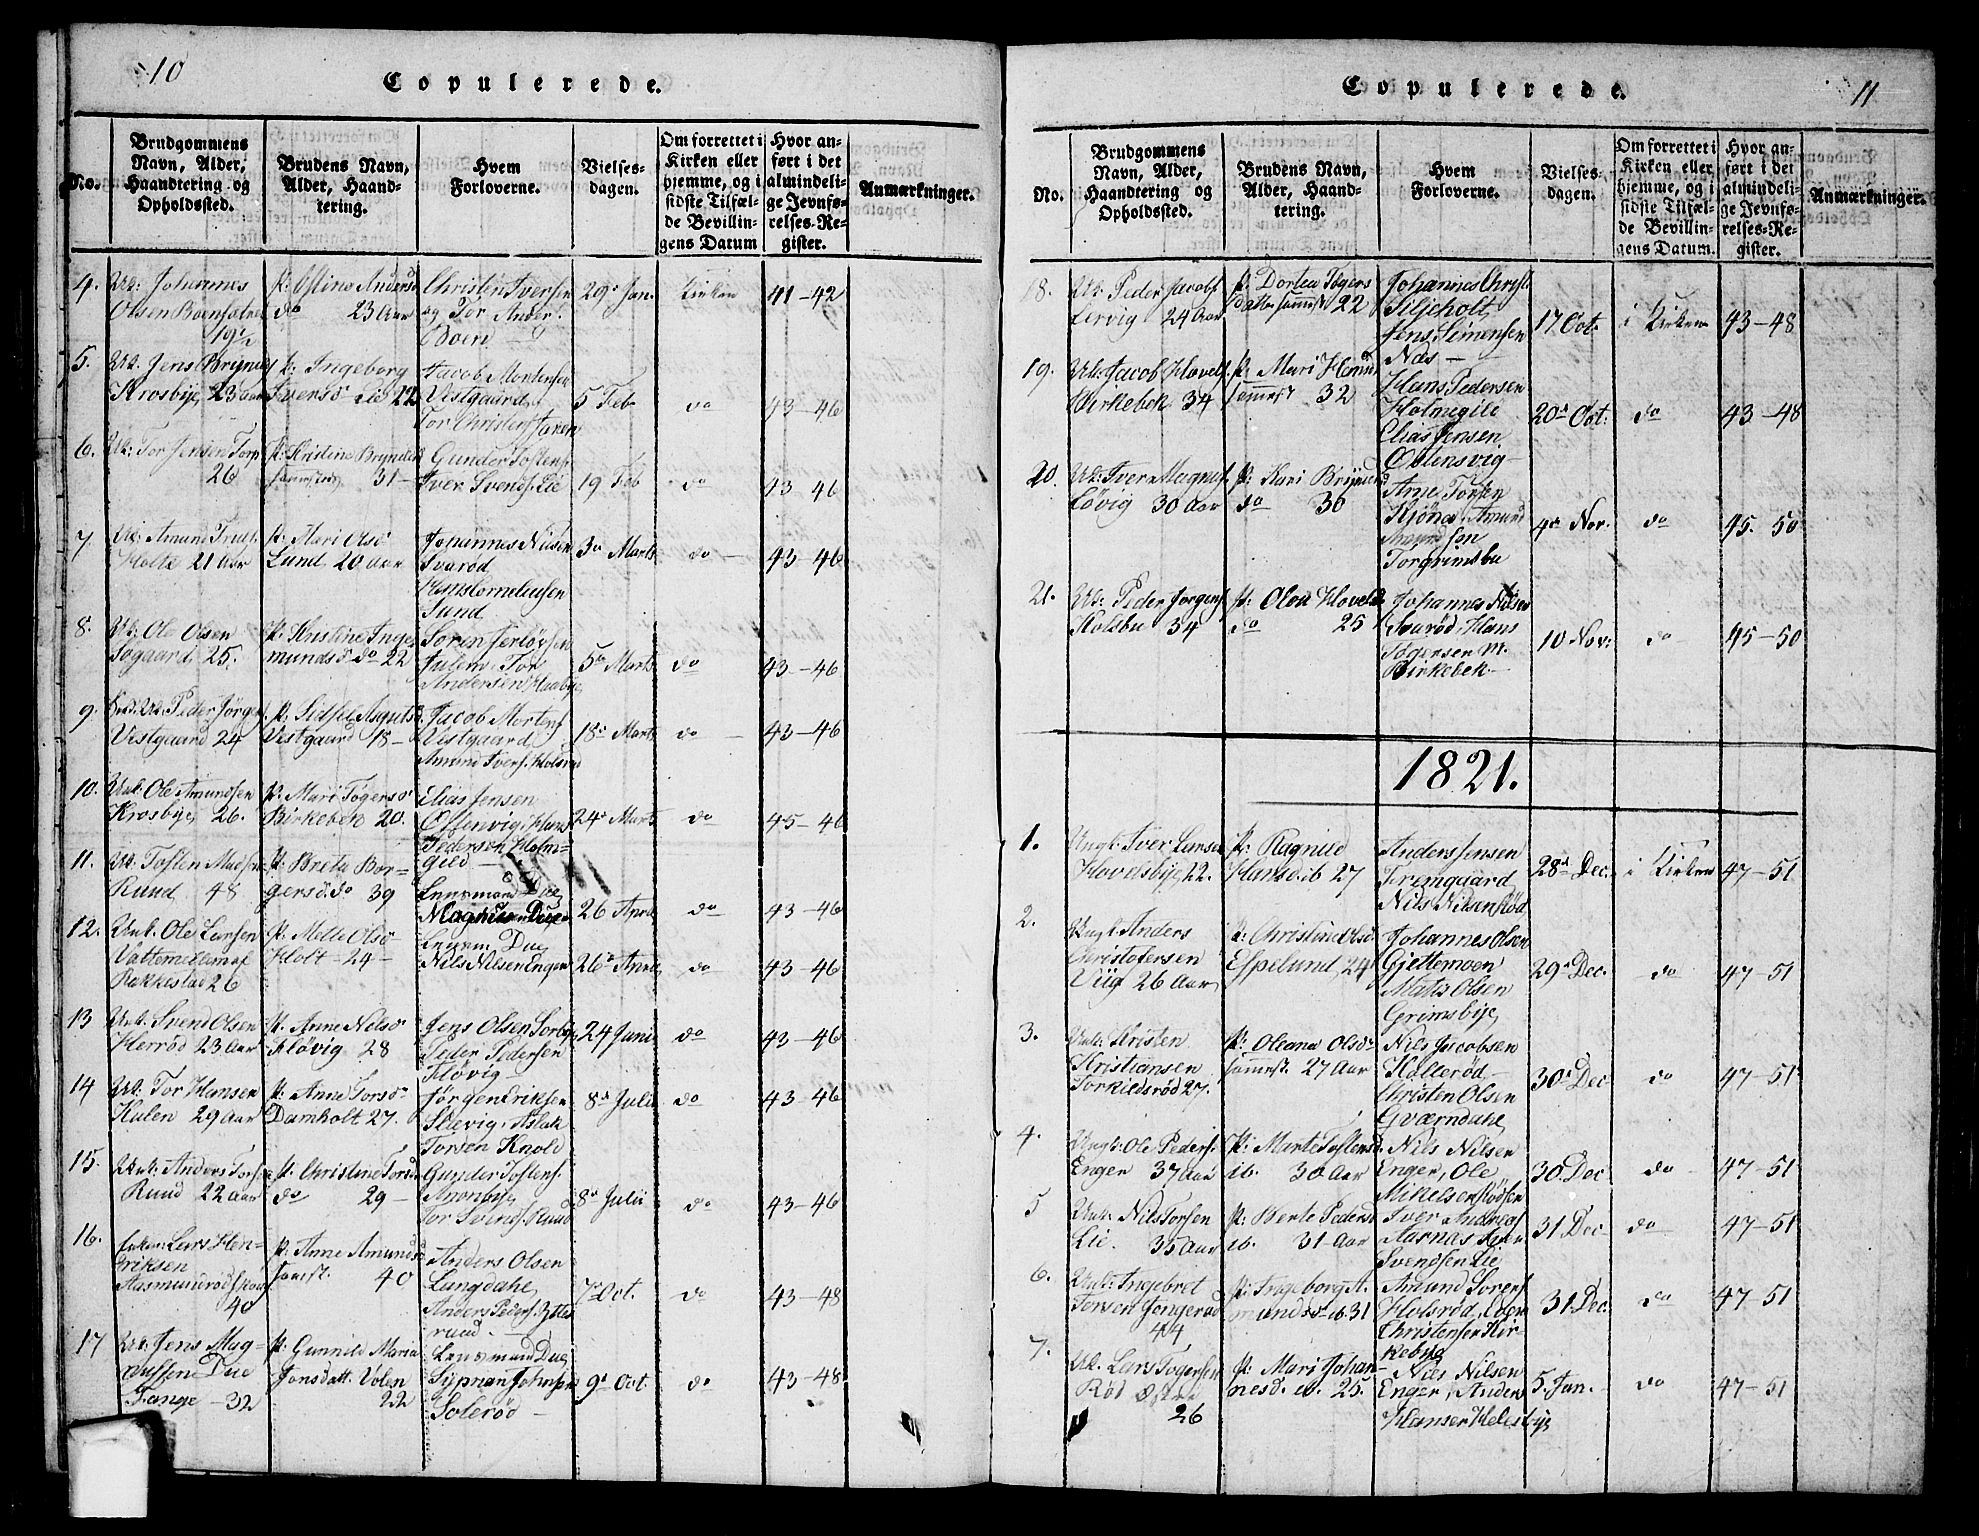 10
Copulerede.
No.
Brudgommens
Navn, Alder,
Haandtering og
Opholdssted.
Brudens Navn,
Alder, Haand-
tering.
Hvem
Forloverne.
Vielses-
dagen.
Om forrettet i
Kirken eller
hjemme, og i
sidste Tilfæl-
de Bevillin-
gens Datum
Hvor an-
ført i det
almindeli-
ge Jevnfø-
relses-Re-
gister.
Anmærkninger.
4. Uk: Johannes
Olsen
19½
P: Ostine Anders
do 23 Aar
Christen Iversen
og Tor Ander.
Boen
29d Jan.
Kirken
41-42
5. Uk. Jens Brynilds
Krosbye 23 aar
P: Ingeborg
Iversd Lie 22
Jacob Mortensen
Vestgaard
Tor Christens
5 Feb
do
43-46
6. Uk: Tor Jensen Torp
26
P: Kristine Brynilds
31-
Gunder Tostens.
Iver Svends. Lie
19 Feb
do
43 46
7. Uk. Amund Truls.
Holte 21 Aar
P: Mari Olsd
Lund 20 Aar
Johannes Nilsen
Svarød
Hans Cornelius­sen
Lund
3d Marts
do
43-46
8. Uk: Ole Olsen
Søgaard 25.
P: Kristine Inge
munds d. do 22
Soren
Julem Tor
Andersen Haabye
5d Marts
do
43-46
9. Uk. Peder Jörgen
Vestgaard 24
P: Sidsel
Vestgaard 18-
Jacob Mortens
Vestgaard
Amund Ivers. Holsrød
18d Marts
do
43-46
10. Unk. Ole Amundsen
Krosbye 26.
P: Mari Togersd
Birkebek 20.
Elias Jensen
Hans
Pedersen Holm-
gild
24d Marts
do
45-46
11. Uk. Tosten Madsen
Ruud 48
P: Breta Bor-
gersd. do 39
Lensmand Due
Magnus Due
26 April
do
43-46
12. Unk. Ole Larsen
Rakkestad 26
P. Mette Olsd
Holt 24-
Lensm Due
Nils Nilsen Enger
26d April
do
43-46
13 Unk. Svend Olsen
Herrød 23 Aar
P. Anne Nilsd
Kløvig 28
Jens Olsen Sorbye
Peder Pedersen
Kløvig-
24 Juni
do
43-46
14 Uk. Tor Hansen
Kulen 29 Aar
P. Anne Torsd
Damholt 27.
Jørgen Eriksen
Slevig, Aslak
Torsen Knold
8d Juli
do
43-46
15. Unk: Anders Torsen
Ruud 22 Aar
P. Christine Torsd
do 29-
Gunder Tostens.
Aronbye
Tor Svends. Ruud
8d Julii
do
43-46
16. Enkem: Lars Hen-
riksen
Aasmundrød
40
P. Anne Amunds
samst. 40
Anders Olsen
Langdahl
Anders Peders. Ytter
ruud.
7d Oct.
do
43-48
17 Uk. Jens Mag-
nussen Due
Tange-32
P. Gunnild Maria
Jonsdatt. Volen
22
Lensmand Due
Siprian Johnsen
Solerød-
9d Oct.
do
43-48
11
Copulerede.
No.
Brudgommens
Navn, Alder,
Haandtering og
Opholdssted.
Brudens Navn,
Alder, Haand-
tering.
Hvem
Forloverne.
Vielses-
dagen.
Om forrettet i
Kirken eller
hjemme, og i
sidste Tilfæl-
de Bevillin-
gens Datum.
Hvor an-
ført i det
almindeli-
ge Jevnfø-
relses-Re-
gister.
Anmærkninger.
18. Uk. Peder Jacobs
Lervig 24 Aar
P. Dortea Togers
datter samst 22
Johannes Christ
Siljeholt
Jens Simensen
Næs-
17 Oct.
i Kirken
43-48
19. Uk. Jacob Hovels.
Birkebek 34
P. Mari Hansd
samst 32
Hans Pedersen
Holmegile
Elias Jensen
Østensvig-
20d Oct.
do
43-48
20. Uk: Iver Magnus.
Løvig 30 Aar
P. Kari Brynild
do 30
Arne Torsen
Kjønes Amund
Torgrimsbu
4d Nov.
do
45. 50
21. Uk: Peder Jørgens.
Holtbu 34
P. Olea Hovelsd
do 25
Johannes Nilsen
Svarød, Hans
Torgersen m.
Birkebek-
10 Nov:
do
45-50
1821.
1. Ungk. Iver Larsen
Hovelsbye 22.
P: Ragnild
Hansd ib 27
Anders Jensen
Fremgaard
Nils Nilsen Rød
28d Dec.
i Kirken
47-51
2. Ungk. Anders
Christofersen
Viig 26 Aar
P: Christine Olsd
Espelund 24
Johannes Olsen
Gjettemoen
Mats Olsen
Grimsbye
29d Dec.
do
47-51
3. Unk: Kristen
Kristiansen
Torkildsrød 27.
P. Oleana Olsd
samst. 27 Aar
Nils Jacobsen
Kallerød-
Christen Olsen
Gværndahl
30d Dec
do
47-51
4. Ungk. Ole Peders.
Enger 37 Aar
P. Marte Tostensd
ib. 30 Aar
Nils Nilsen
Enger, Ole
Mikelsen Rødsen
30. Dec
do
47-51
5 Unk. Nils Torsen
Lie. 35 Aar
P: Berte Pedersd
ib. 31 Aar
Iver Andreas
Aarnæs Iver
Svendsen Lie
31 Dec
do
47-51
6. Unk. Ingebret
Torsen Jongerød
44
P: Ingeborg A.
mundsd ib. 31
Amund Sorens
Holsrød, Iver
Christensen Kir-
kebye
31 Dec.
do
47-51
7. Uk. Lars Togersen
Rød Østre
26
P: Mari Johan-
nesd. ib. 25.
Nils Nilsen
Enger, Anders
Hansen Helesbye
5. Jan.
do
47-51